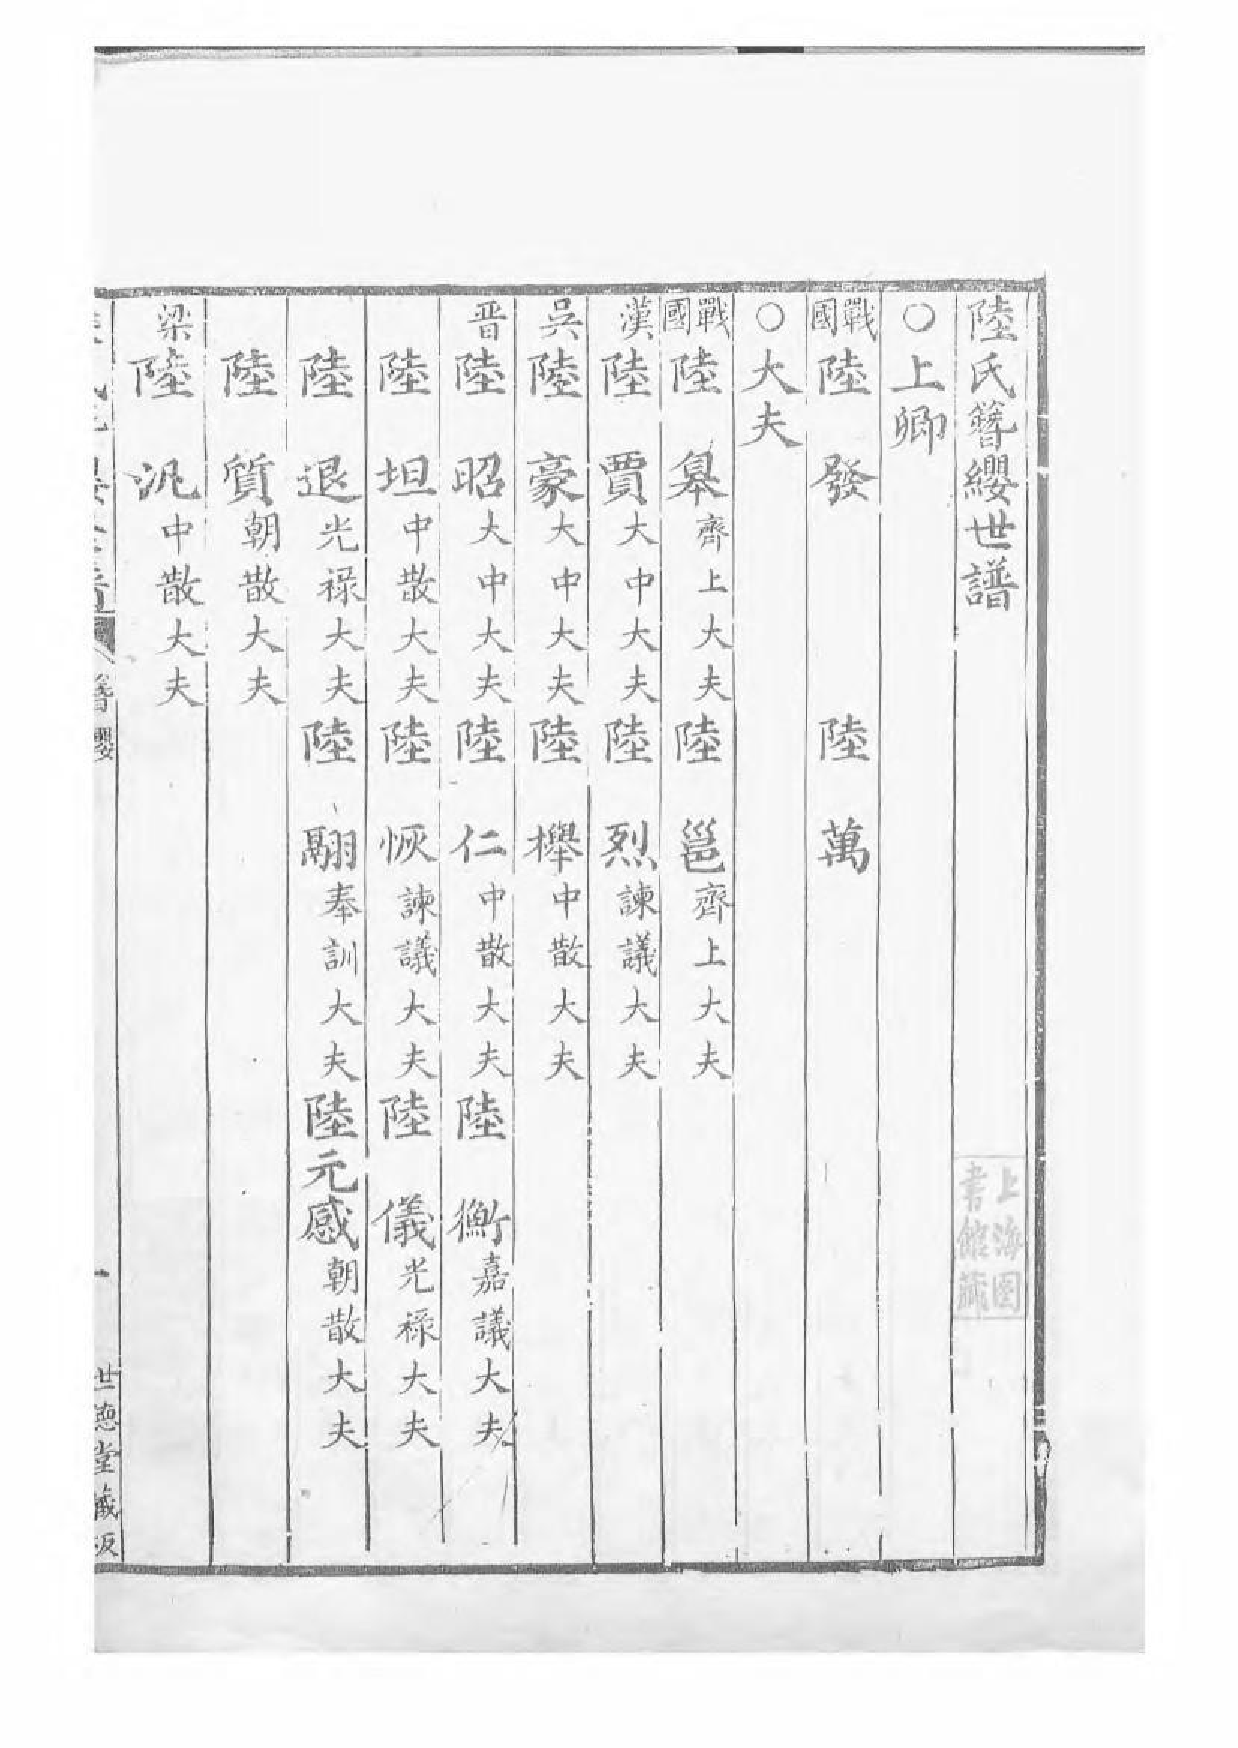 陸氏簪纓世譜
○上卿
戰國 陸 發 陸 萬
○大夫
戰國 陸 皋 齊上大夫 陸 邕 齊上大夫
漢 陸 賈 大中大夫 陸 烈 諫議大夫
吳 陸 豪 大中大夫 陸 櫸 中散大夫
晋 陸 昭 大中大夫 陸 仁 中散大夫 陸 衡 嘉議大夫
陸 坦 中散大夫 陸 恢 諫議大夫 陸 儀 光祿大夫
陸 退 光祿大夫 陸 翮 奉訓大夫 陸元感 朝散大夫
陸 質 朝散大夫
梁 陸 汎 中散大夫
簪纓 一 世德堂藏板
上海圖書館藏